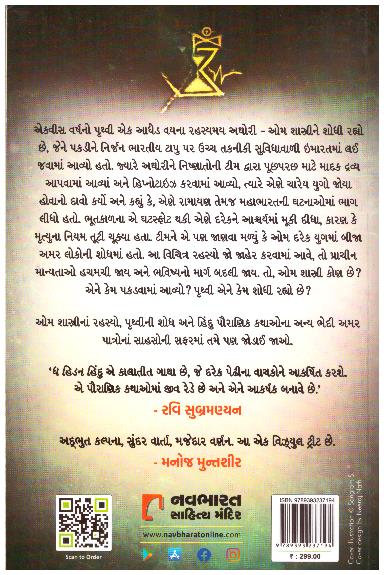 એકવીસ વર્ષનો પૃથ્વી એક આધેડ વયના રહસ્યમય અઘોરી - ઓમ શાસ્ત્રીને શોધી રહ્યો
છે, જેને પકડીને નિર્જન ભારતીય ટાપુ પર ઉચ્ચ તકનીકી સુવિધાવાળી ઇમારતમાં લઈ
જવામાં આવ્યો હતો. જ્યારે અઘોરીને નિષ્ણાતોની ટીમ દ્વારા પૂછપરછ માટે માદક દ્રવ્ય
આપવામાં આવ્યાં અને હિપ્નોટાઇઝ કરવામાં આવ્યો, ત્યારે એણે ચારેય યુગો જોયા
હોવાનો દાવો કર્યો અને કહ્યું કે, એણે રામાયણ તેમજ મહાભારતની ઘટનાઓમાં ભાગ
લીધો હતો. ભૂતકાળના એ ઘટસ્ફોટ થકી એણે દરેકને આશ્ચર્યમાં મૂકી દીધા, કારણ કે
મૃત્યુના નિયમ તૂટી ચૂક્યા હતા. ટીમને એ પણ જાણવા મળ્યું કે ઓમ દરેક યુગમાં બીજા
અમર લોકોની શોધમાં હતો. આ વિચિત્ર રહસ્યો જો જાહેર કરવામાં આવે, તો પ્રાચીન
માન્યતાઓ હચમચી જાય અને ભવિષ્યનો માર્ગ બદલી જાય. તો, ઓમ શાસ્ત્રી કોણ છે?
એને કેમ પકડવામાં આવ્યો? પૃથ્વી એને કેમ શોધી રહ્યો છે?
ઓમ શાસ્ત્રીનાં રહસ્યો, પૃથ્વીની શોધ અને હિંદુ પૌરાણિક કથાઓના અન્ય ભેદી અમર
પાત્રોનાં સાહસોની સફરમાં તમે પણ જોડાઈ જાઓ.
'ધ હિડન હિંદુ એ કાલાતીત ગાથા છે, જે દરેક પેઢીના વાચકોને આકર્ષિત કરશે.
એ પૌરાણિક કથાઓમાં જીવ રેડે છે અને એને આકર્ષક બનાવે છે.'
- રવિ સુબ્રમણ્યન
અદ્ભુત કલ્પના, સુંદર વાર્તા, મજેદાર વર્ણન. આ એક વિઝ્યુલ ટ્રીટ છે.
- મનોજ મુન્તશીર
Scan to Order
નવભારત
સાહિત્ય મંદિર
www.navbharatonline.com
ISBN 9789393237194
9 789393 237194
₹ : 299.00